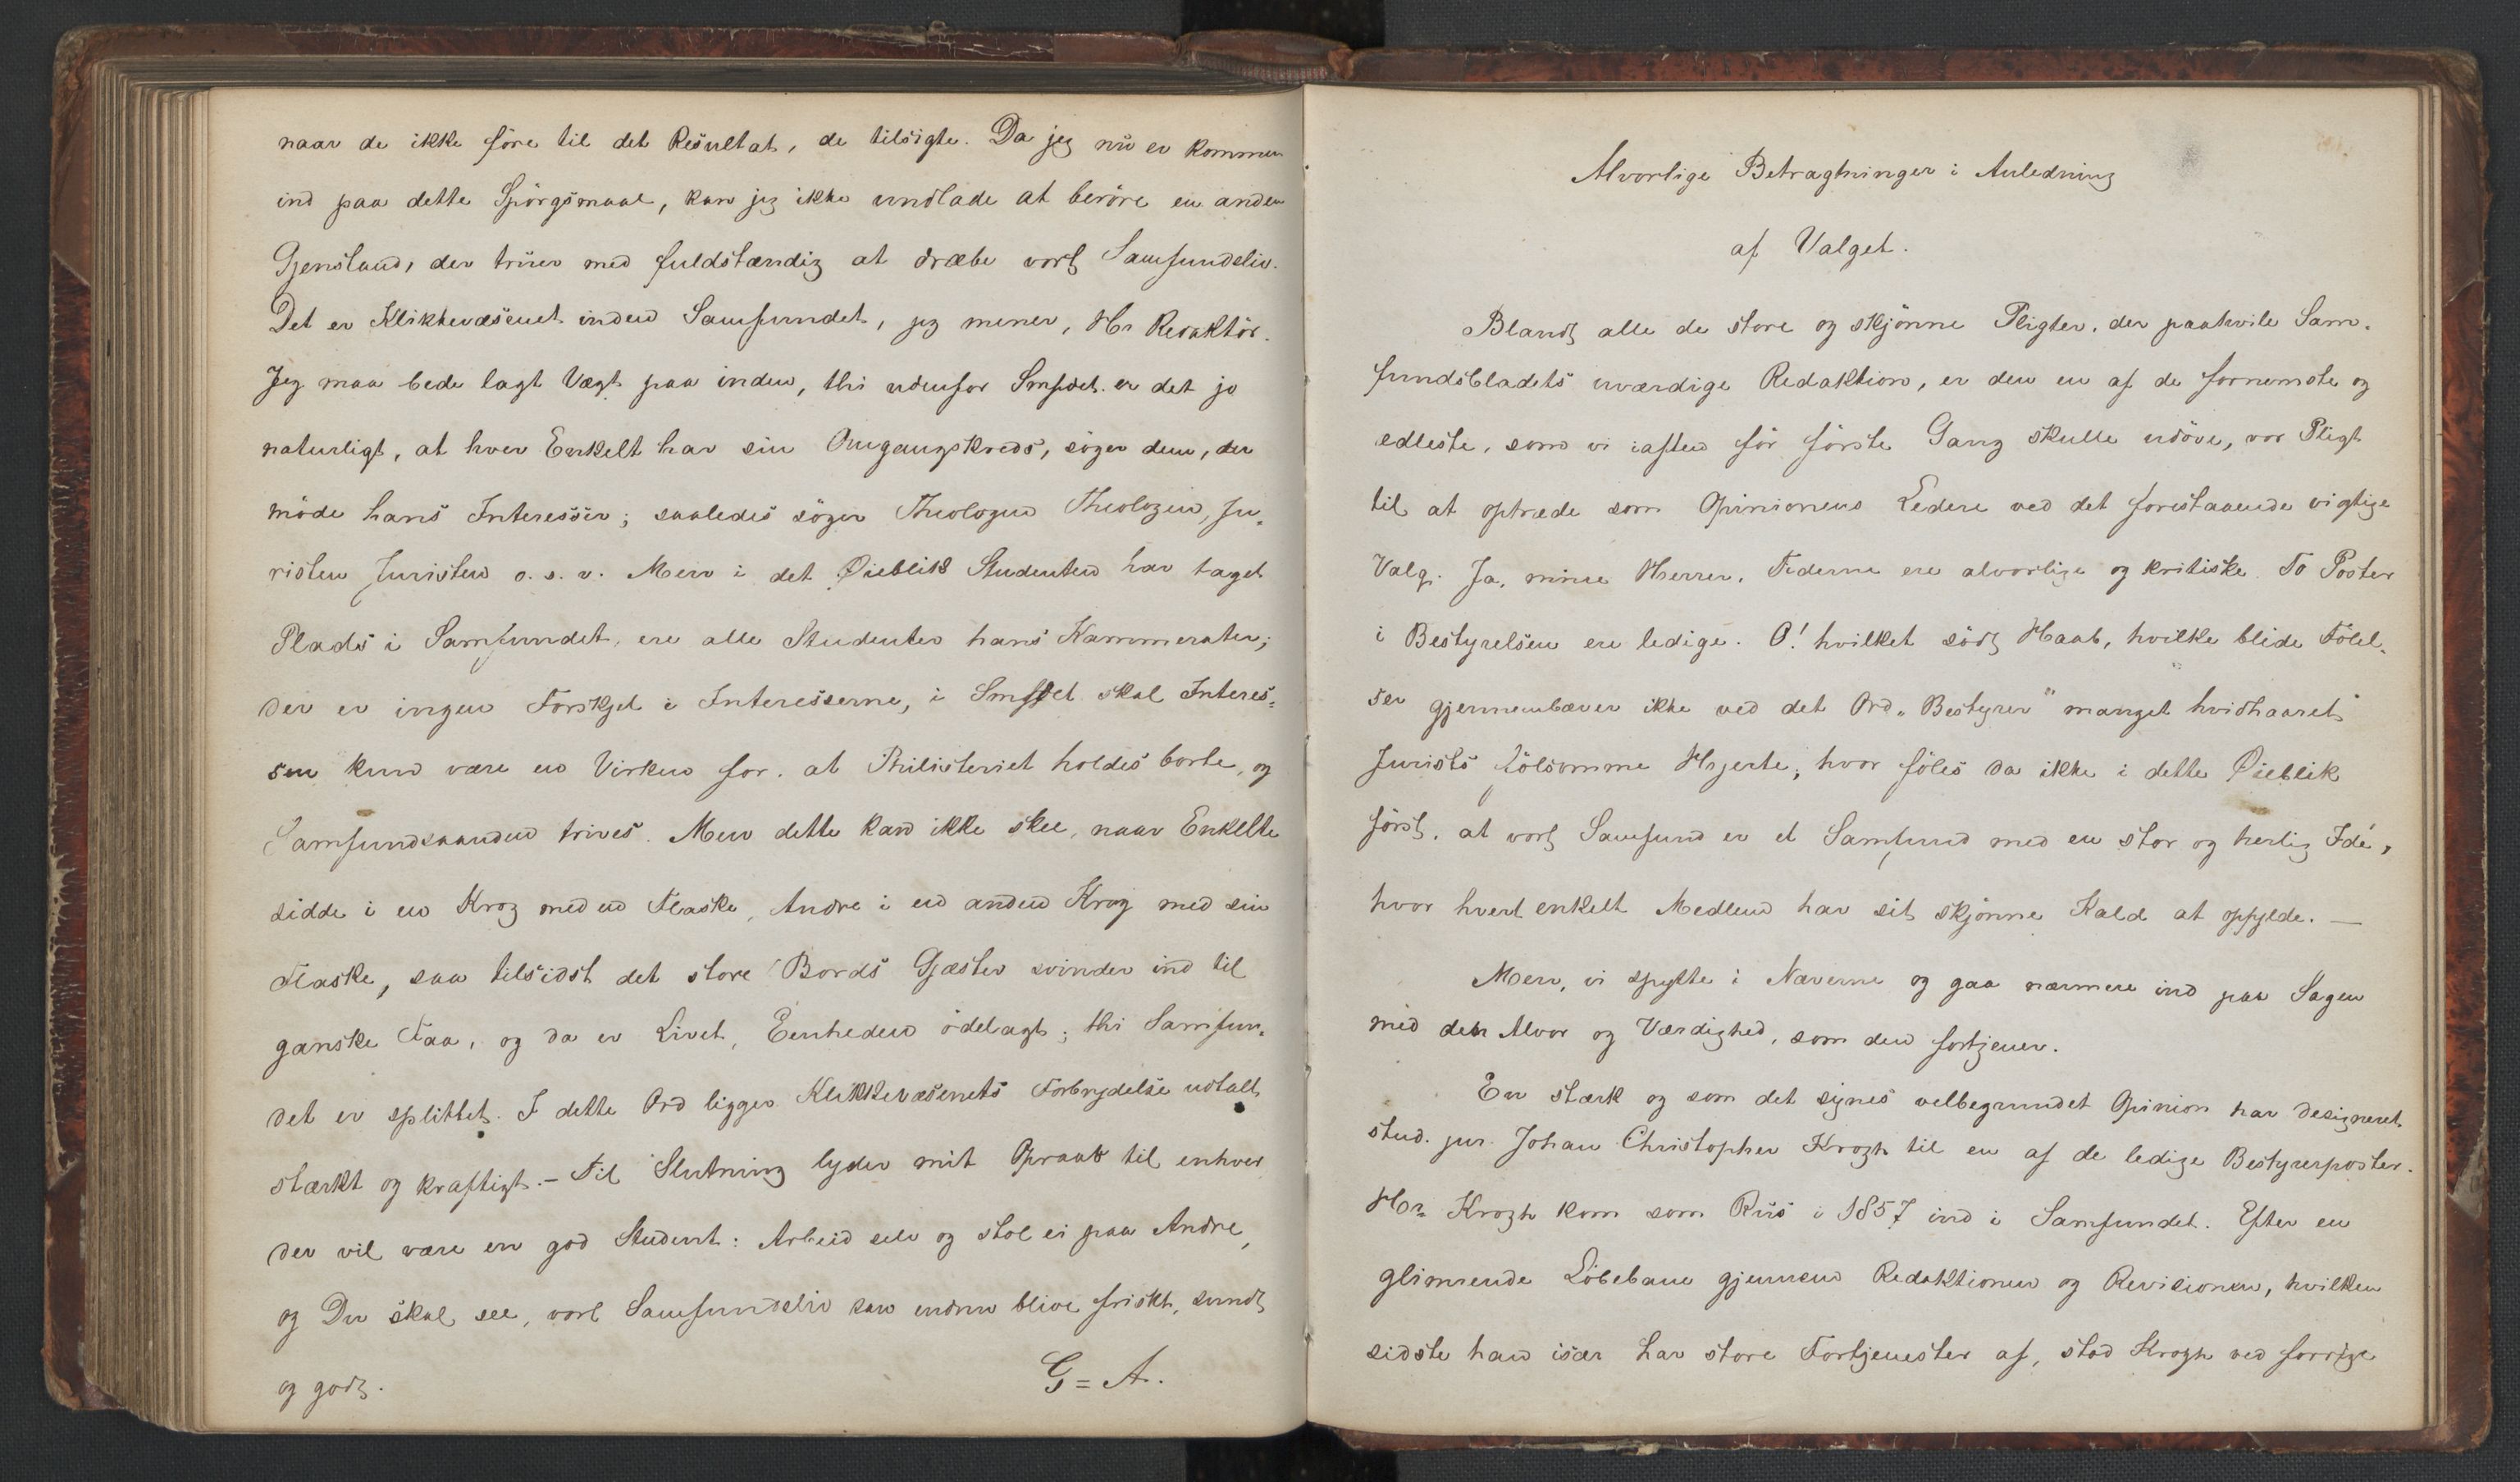 naar de ikke före til det Resultat, de tilsigte. Da jeg nu er kommen
ind paa dette Spörgsmaal, kan jeg ikke undlade at beröre en anden
Gjenstand, der truer med fuldstændig at dræbe vort Samfundsliv.
Det er Klikkevæsenet inden Samfundet, jeg mener, Hr Redaktör.
Jeg maa bede lagt Vægt paa inden, thi udenfor Smfdet. er det jo
naturligt, at hver Enkelt har sin Omgangskreds, söger dem, der
möde hans Interesser; saaledes söger Theologen Theologen, Ju-
risten Juristen o. s. v. Men i det Øieblik Studenten har taget
Plads i Samfundet, ere alle Studenter hans Kammerater;
der er ingen Forskjel i Interesserne, i Smfdet skal Interes-
sen kun være en Virken for, at Philisteriet holdes borte, og
Samfundsaanden trives. Men dette kan ikke skee, naar Enkelte
sidde i en Krog med en Flaske, Andre i en anden Krog med sin
Flaske, saa tilsidst det store Bords Gjæster svinder ind til
ganske Faa, og da er Livet, Eenheden ödelagt; thi Samfun-
det er splittet. I dette Ord ligger Klikkevæsenets Forbrydelse udtalt
stærkt og kraftigt. – Til Slutning lyder mit Opraab til enhver
der vil være en god Student: Arbeid selv og stol ei paa Andre,
og Du skal see, vort Samfundsliv kan endnu blive friskt, sundt
og godt.
G = A.
Alvorlige Betragtninger i Anledning
af Valget.
Blandt alle de store og skjönne Pligter, der paahvile Sam-
fundsbladets uværdige Redaktion, er den en af de fornemste og
edleste, som vi iaften for förste Gang skulle udöve, vor Pligt
til at optræde som Opinionens Ledere ved det forestaaende vigtige
Valg. Ja, mine Herrer, Tiderne ere alvorlige og kritiske. To Poster
i Bestyrelsen ere ledige. O! hvilket södt Haab, hvilke blide Fölel-
ser gjennembæver ikke ved det Ord „Bestyrer" manget hvidhaaret
Jurists fölsomme Hjerte; hvor föles da ikke i dette Øieblik
först, at vort Samfund er et Samfund med en stor og herlig Idé,
hvor hvert enkelt Medlem har sit skjönne Kald at opfylde. —
Men, vi spytte i Næverne og gaa nærmere ind paa Sagen
med den Alvor og Værdighed, som den fortjener.
En stærk og som det synes velbegrundet Opinion har designeret
stud. jur. Johan Christopher Krogh til en af de ledige Bestyrerposter.
Hr Krogh kom som Rus i 1857 ind i Samfundet. Efter en
glimrende Löbebane gjennem Redaktionen og Revisionen, hvilken
sidste han især har store Fortjenester af, stod Krogh ved forrige